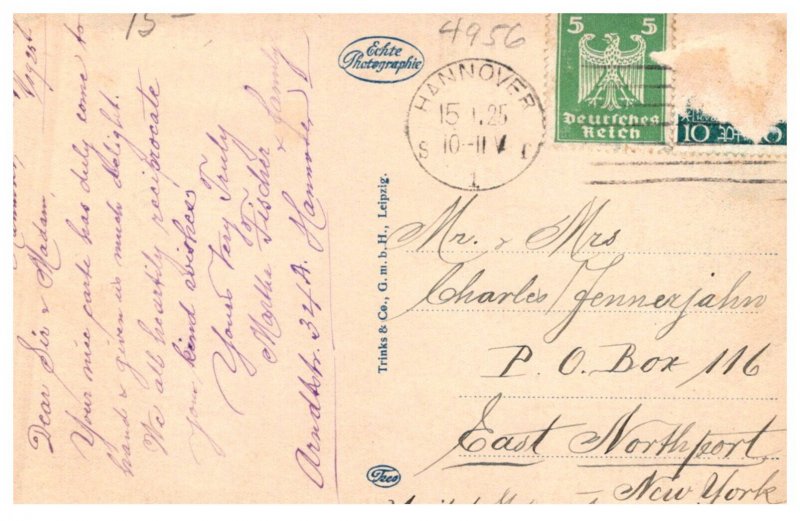 15-
4956
Echte
Photographie
HANNOVER
15 1.25
10-11 V
1
5 5
Deutsches
Reich
10
Dear Sir & Madam,
Your nice carte has duly come to
hand & given us much delight.
We all heartily reciprocate
your kind wishes,
Yours Very Truly
Marthe Fischer & family
Arndtstr. 34 A. Hannover
Trinks & Co., G. m. b. H., Leipzig.
Mr. & Mrs
Charles Fennerjahn
P. O. Box 116
East Northport
New York
Trco